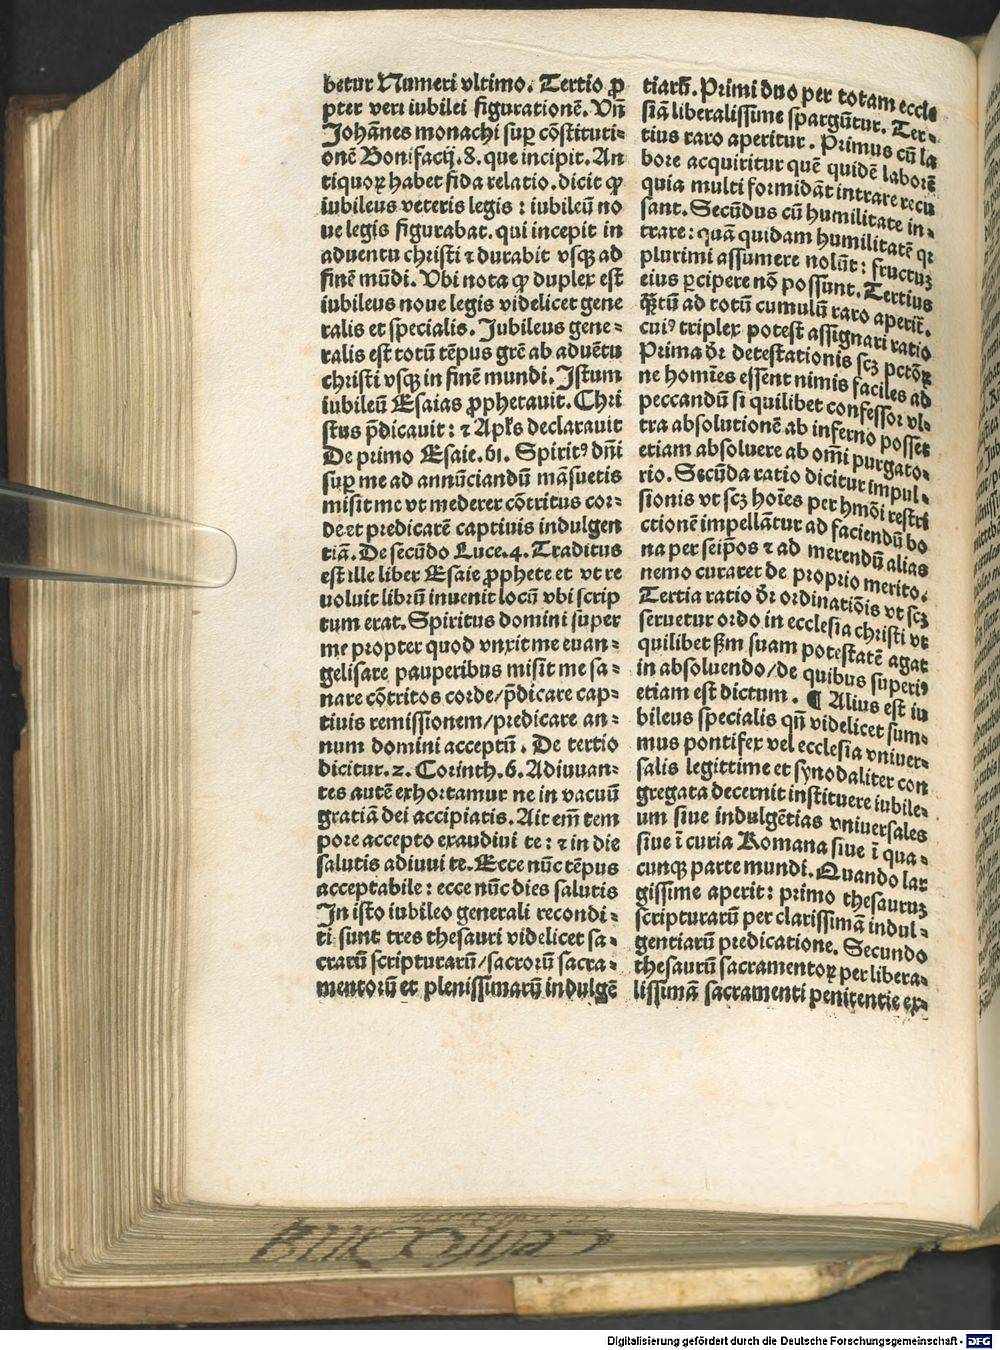 betur Numeri vltimo. Tertio ꝓ
pter veri iubilei figurationē. Vñ
Johānes monachi suꝑ cōstituti⸗
onē Bonifacij.8. que incipit. An
tiquoꝝ habet fida relatio. dicit ꝙ
iubileus veteris legis : iubileū no
ue legis figurabat. qui incepit in
aduentu christi ⁊ durabit vsqꝫ ad
finē mūdi. Vbi nota ꝙ duplex est
iubileus noue legis videlicet gene
ralis et specialis. Jubileus gene⸗
ralis est totū tēpus grē ab aduētu
christi vsqꝫ in finē mundi. Istum
iubileū Esaias ꝓphetauit. Chri
stus p̄dicauit : ⁊ Apl̄s declarauit
De primo Esaie.61. Spiritꝰ dn̄i
suꝑ me ad annūciandū māsuetis
misit me vt mederer cōtritus cor⸗
de et predicarē captiuis indulgen
tiā. De secūdo Luce.4. Traditus
est ille liber Esaie ꝓphete et vt re
uoluit librū inuenit locū vbi scrip
tum erat. Spiritus domini super
me propter quod vnxit me euan⸗
gelisare pauperibus misit me sa⸗
nare cōtritos corde/p̄dicare cap⸗
tiuis remissionem/predicare an⸗
num domini acceptū. De tertio
dicitur.2. Corinth.6. Adiuuan⸗
tes autē exhortamur ne in vacuū
gratiā dei accipiatis. Ait em̄ tem
pore accepto exaudiui te : ⁊ in die
salutis adiuui te. Ecce nūc tēpus
acceptabile : ecce nūc dies salutis
In isto iubileo generali recondi⸗
ti sunt tres thesauri videlicet sa⸗
crarū scripturarū/sacrorū sacra⸗
mentorū et plenissimarū indulgē
tiarū. Primi duo per totam eccle
siā liberalissime spargūtur. Ter⸗
tius raro aperitur. Primus cū la
bore acquiritur quē quidē laborē
quia multi formidāt intrare recu
sant. Secūdus cū humilitate in⸗
trare : quā quidam humilitatē qꝛ
plurimi assumere nolūt : fructuꝫ
eius ꝑcipere nō possunt. Tertius
q̄ꝫtū ad totū cumulū raro aperit̄.
cuiꝰ triplex potest assignari ratio
Prima dr̄ detestationis scꝫ pctōꝝ
ne homīes essent nimis faciles ad
peccandū si quilibet confessor vl⸗
tra absolutionē ab inferno posset
etiam absoluere ab om̄i purgato⸗
rio. Secūda ratio dicitur impul⸗
sionis vt scꝫ hoīes per hmōi restri
ctionē impellātur ad faciendū bo
na per seip̄os ⁊ ad merendū alias
nemo curaret de proprio merito.
Tertia ratio dr̄ ordinatiōis vt scꝫ
seruetur ordo in ecclesia christi vt
quilibet ẜm suam potestatē agat
in absoluendo/de quibus superiꝰ
etiam est dictum. ¶ Alius est iu
bileus specialis qn̄ videlicet sum⸗
mus pontifex vel ecclesia vniuer⸗
salis legittime et synodaliter con
gregata decernit instituere iubile⸗
um siue indulgētias vniuersales
siue ī curia Romana siue ī qua⸗
cunqꝫ parte mundi. Quando lar
gissime aperit : primo thesauruꝫ
scripturarū per clarissimā indul⸗
gentiarū predicatione. Secundo
thesaurū sacramentoꝝ per libera⸗
lissimā sacramenti penitentie ex⸗
Digitalisierung gefördert durch die Deutsche Forschungsgemeinschaft - DFG